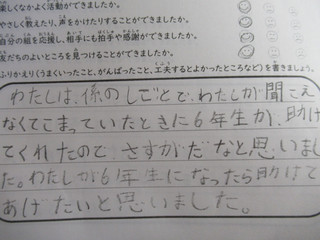 楽しくなかよく活動ができましたか。
やさしく教えたり、声をかけたりすることができましたか。
自分の組を応援し、相手にも拍手や感謝ができましたか。
友だちのよいところを見つけることができましたか。
ふりかえり(うまくいったこと、がんばったこと、工夫するとよかったところなど)を書きましょう。
わたしは、係のしごとで、わたしが聞こえ
なくてこまっていたときに6年生が、助け
てくれたので、さすがだなと思いまし
た。わたしが6年生になったら助けて
あげたいと思いました。